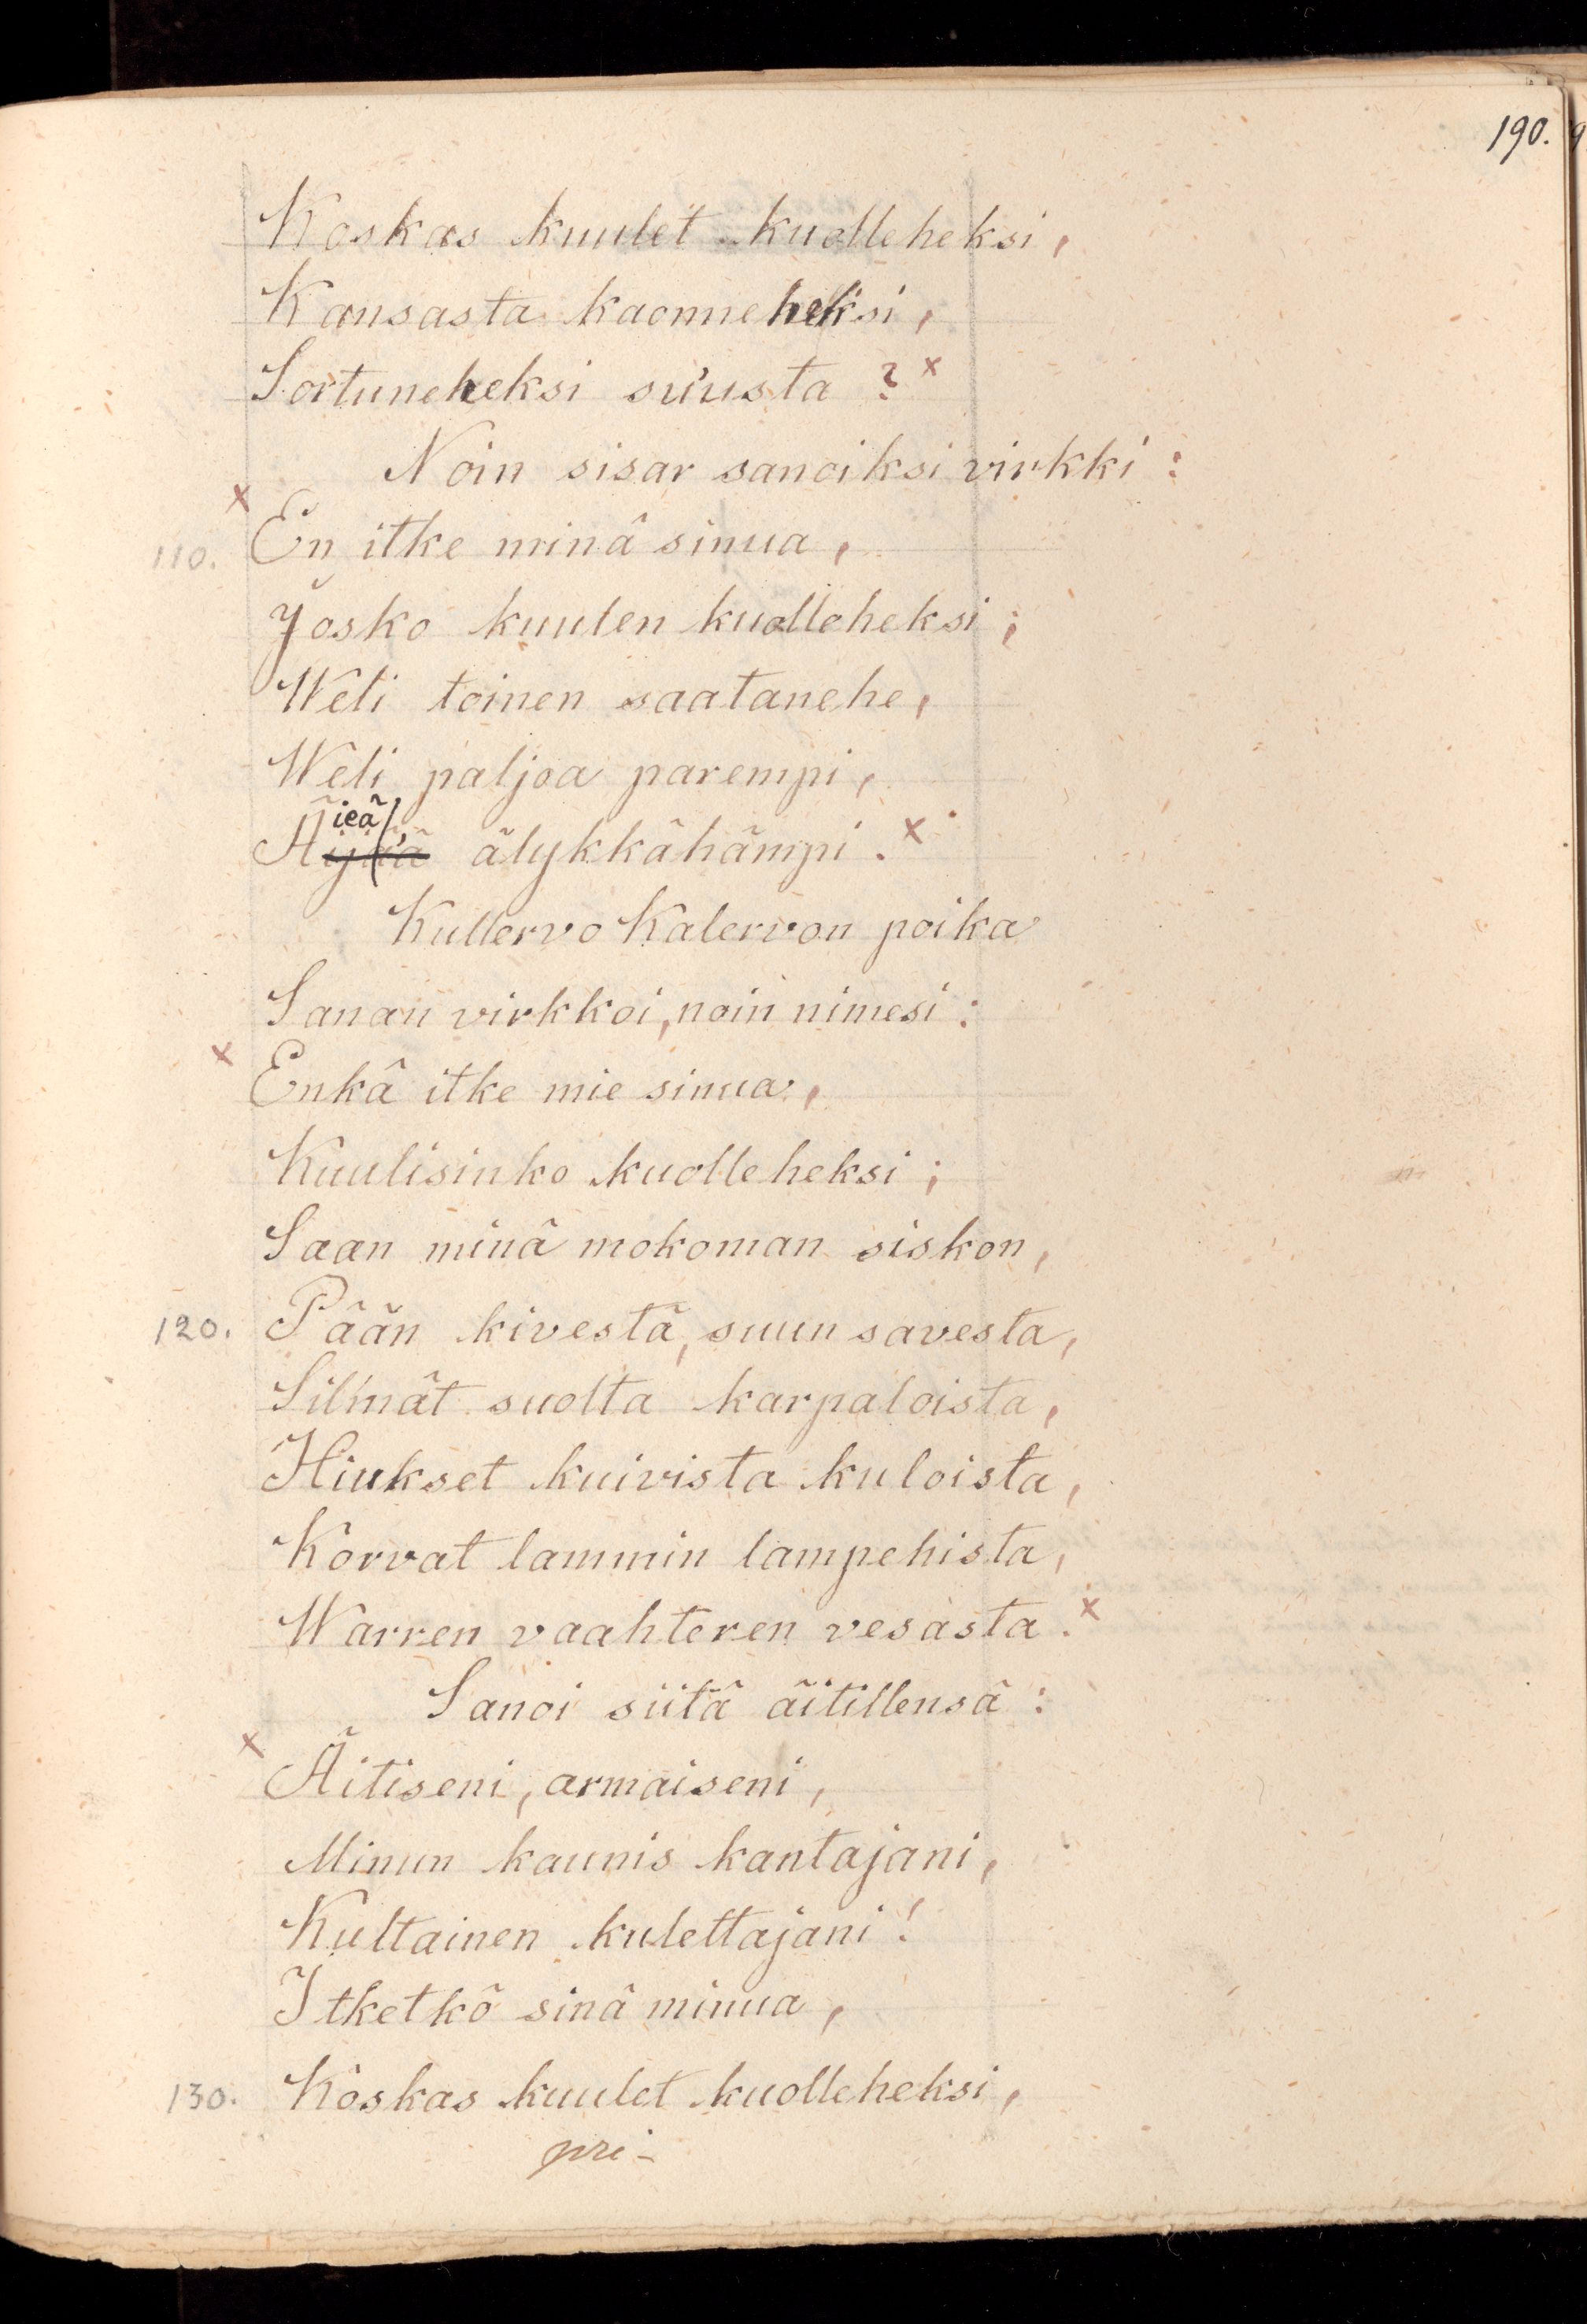 190.
Koskas kuulet kuolleheksi,
Kansasta kaonneheksi,
Sortuneheksi su'usta ? x
Noin sisar sanoiksi virkki :
x
110. En itke minä sinua,
Josko kuulen kuolleheksi ;
Weli toinen saatanehe,
Weli paljoa parempi,
ieä
Äijeä älykkähämpi . x
Kullervo Kalervon poika
Sanan virkkoi, noin nimesi :
x
Enkä itke mie sinua,
Kuulisinko kuolleheksi ;
Saan minä mokoman siskon,
120. Pään kivestä, suun savesta,
Silmät suolta karpaloista,
Hiukset kuivista kuloista,
Korvat lammin lampehista,
Warren vaahteren vesasta . x
Sanoi siitä äitillensä :
x
Äitiseni, armaiseni,
Minun kaunis kantajani,
Kultainen kulettajani !
Itketkö sinä minua,
130. Koskas kuulet kuolleheksi,